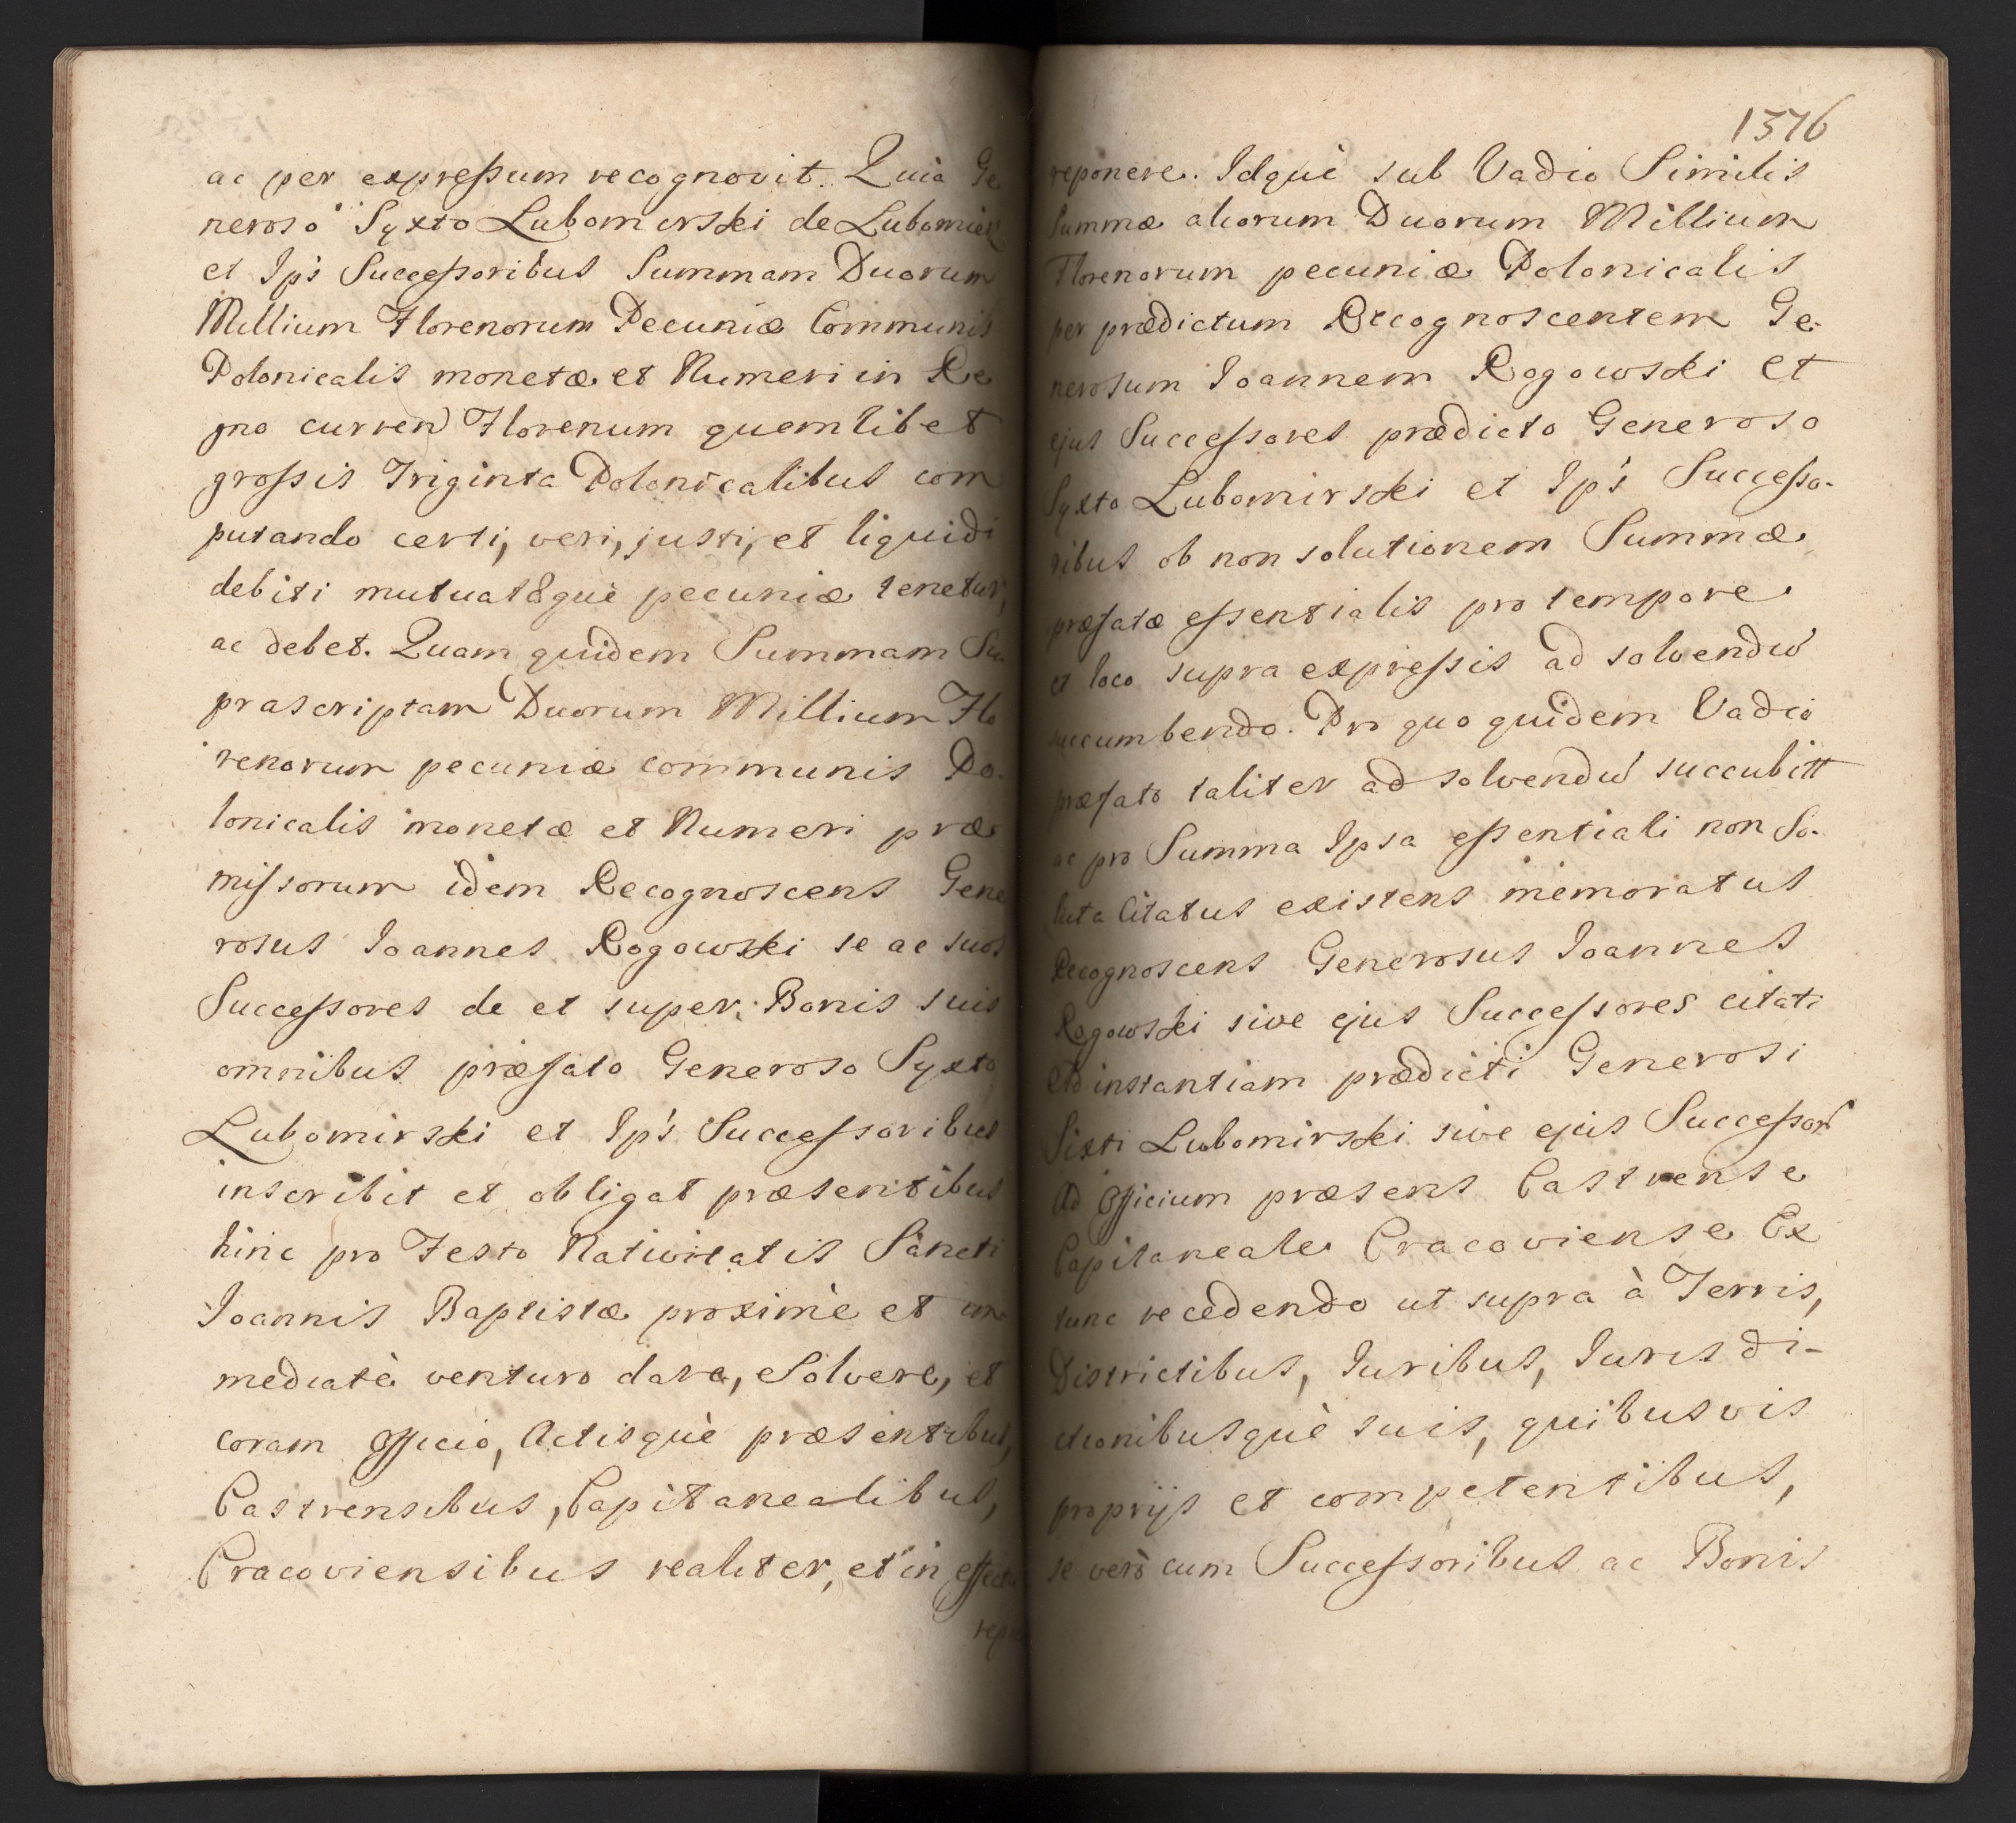 ac per expreſsum recognovit. Quia Ge
neroso Syxto Lubomirski de Lubomierz
et Ip's Succeſsoribus Summam Duorum
Millium Florenorum Pecuniæ Communis
Polonicalis monetæ et Numeri in Re
gno curren Florenum quemlibet
groſsis Triginta Polonicalibus com
putando certi, veri, justi, et liquidi
debiti mutuatæquè pecuniæ tenetur,
ac debet. Quam quidem Summam Su
prascriptam Duorum Millium Flo
renorum pecuniæ communis Po
lonicalis monetæ et Numeri præ
miſsorum idem Recognoscens Gene
rosus Ioannes Rogowski se ac suos
Succeſsores de et super Bonis suis
omnibus præfato Generoso Syxto
Lubomirski et Ip's Succeſsoribus
inscribit et obligat præsentibus
hinc pro Festo Nativitatis Sancti
Ioannis Baptistæ proximè et im
mediatè venturo dare, solvere, et
coram Officio, Actisquè præsentibus,
Castrensibus, Capitanealibus,
Cracoviensibus realiter, et in effectu
repo
1376
reponere. Idquè sub Vadio Similis
Summæ aliorum Duorum Millium
Florenorum pecuniæ Polonicalis
per prædictum Recognoscentem Ge-
nerosum Ioannem Rogowski et
ejus Succeſsores prædicto Generoso
Syxto Lubomirski et Ip's Succeſso-
ribus ob non solutionem Summæ
præfatæ eſsentialis pro tempore
et loco supra expreſsis ad solvendū
succumbendo. Pro quo quidem Vadio
præfato taliter ad solvendū succubitt
ac pro Summa Ipsa eſsentiali non So-
luta Citatus existens memoratus
Recognoscens Generosus Ioannes
Rogowski sive ejus Succeſsores citati
Ad instantiam prædicti Generosi
Sixti Lubomirski sive ejus Succeſsor
Ad Officium præsens Castrense
Capitaneale Cracoviense Ex
tunc recedendo ut supra à Terris,
Districtibus, Iuribus, Iurisdi-
ctionibusquè suis, quibusvis
proprijs et competentibus,
se verò cum Succeſsoribus ac Bonis